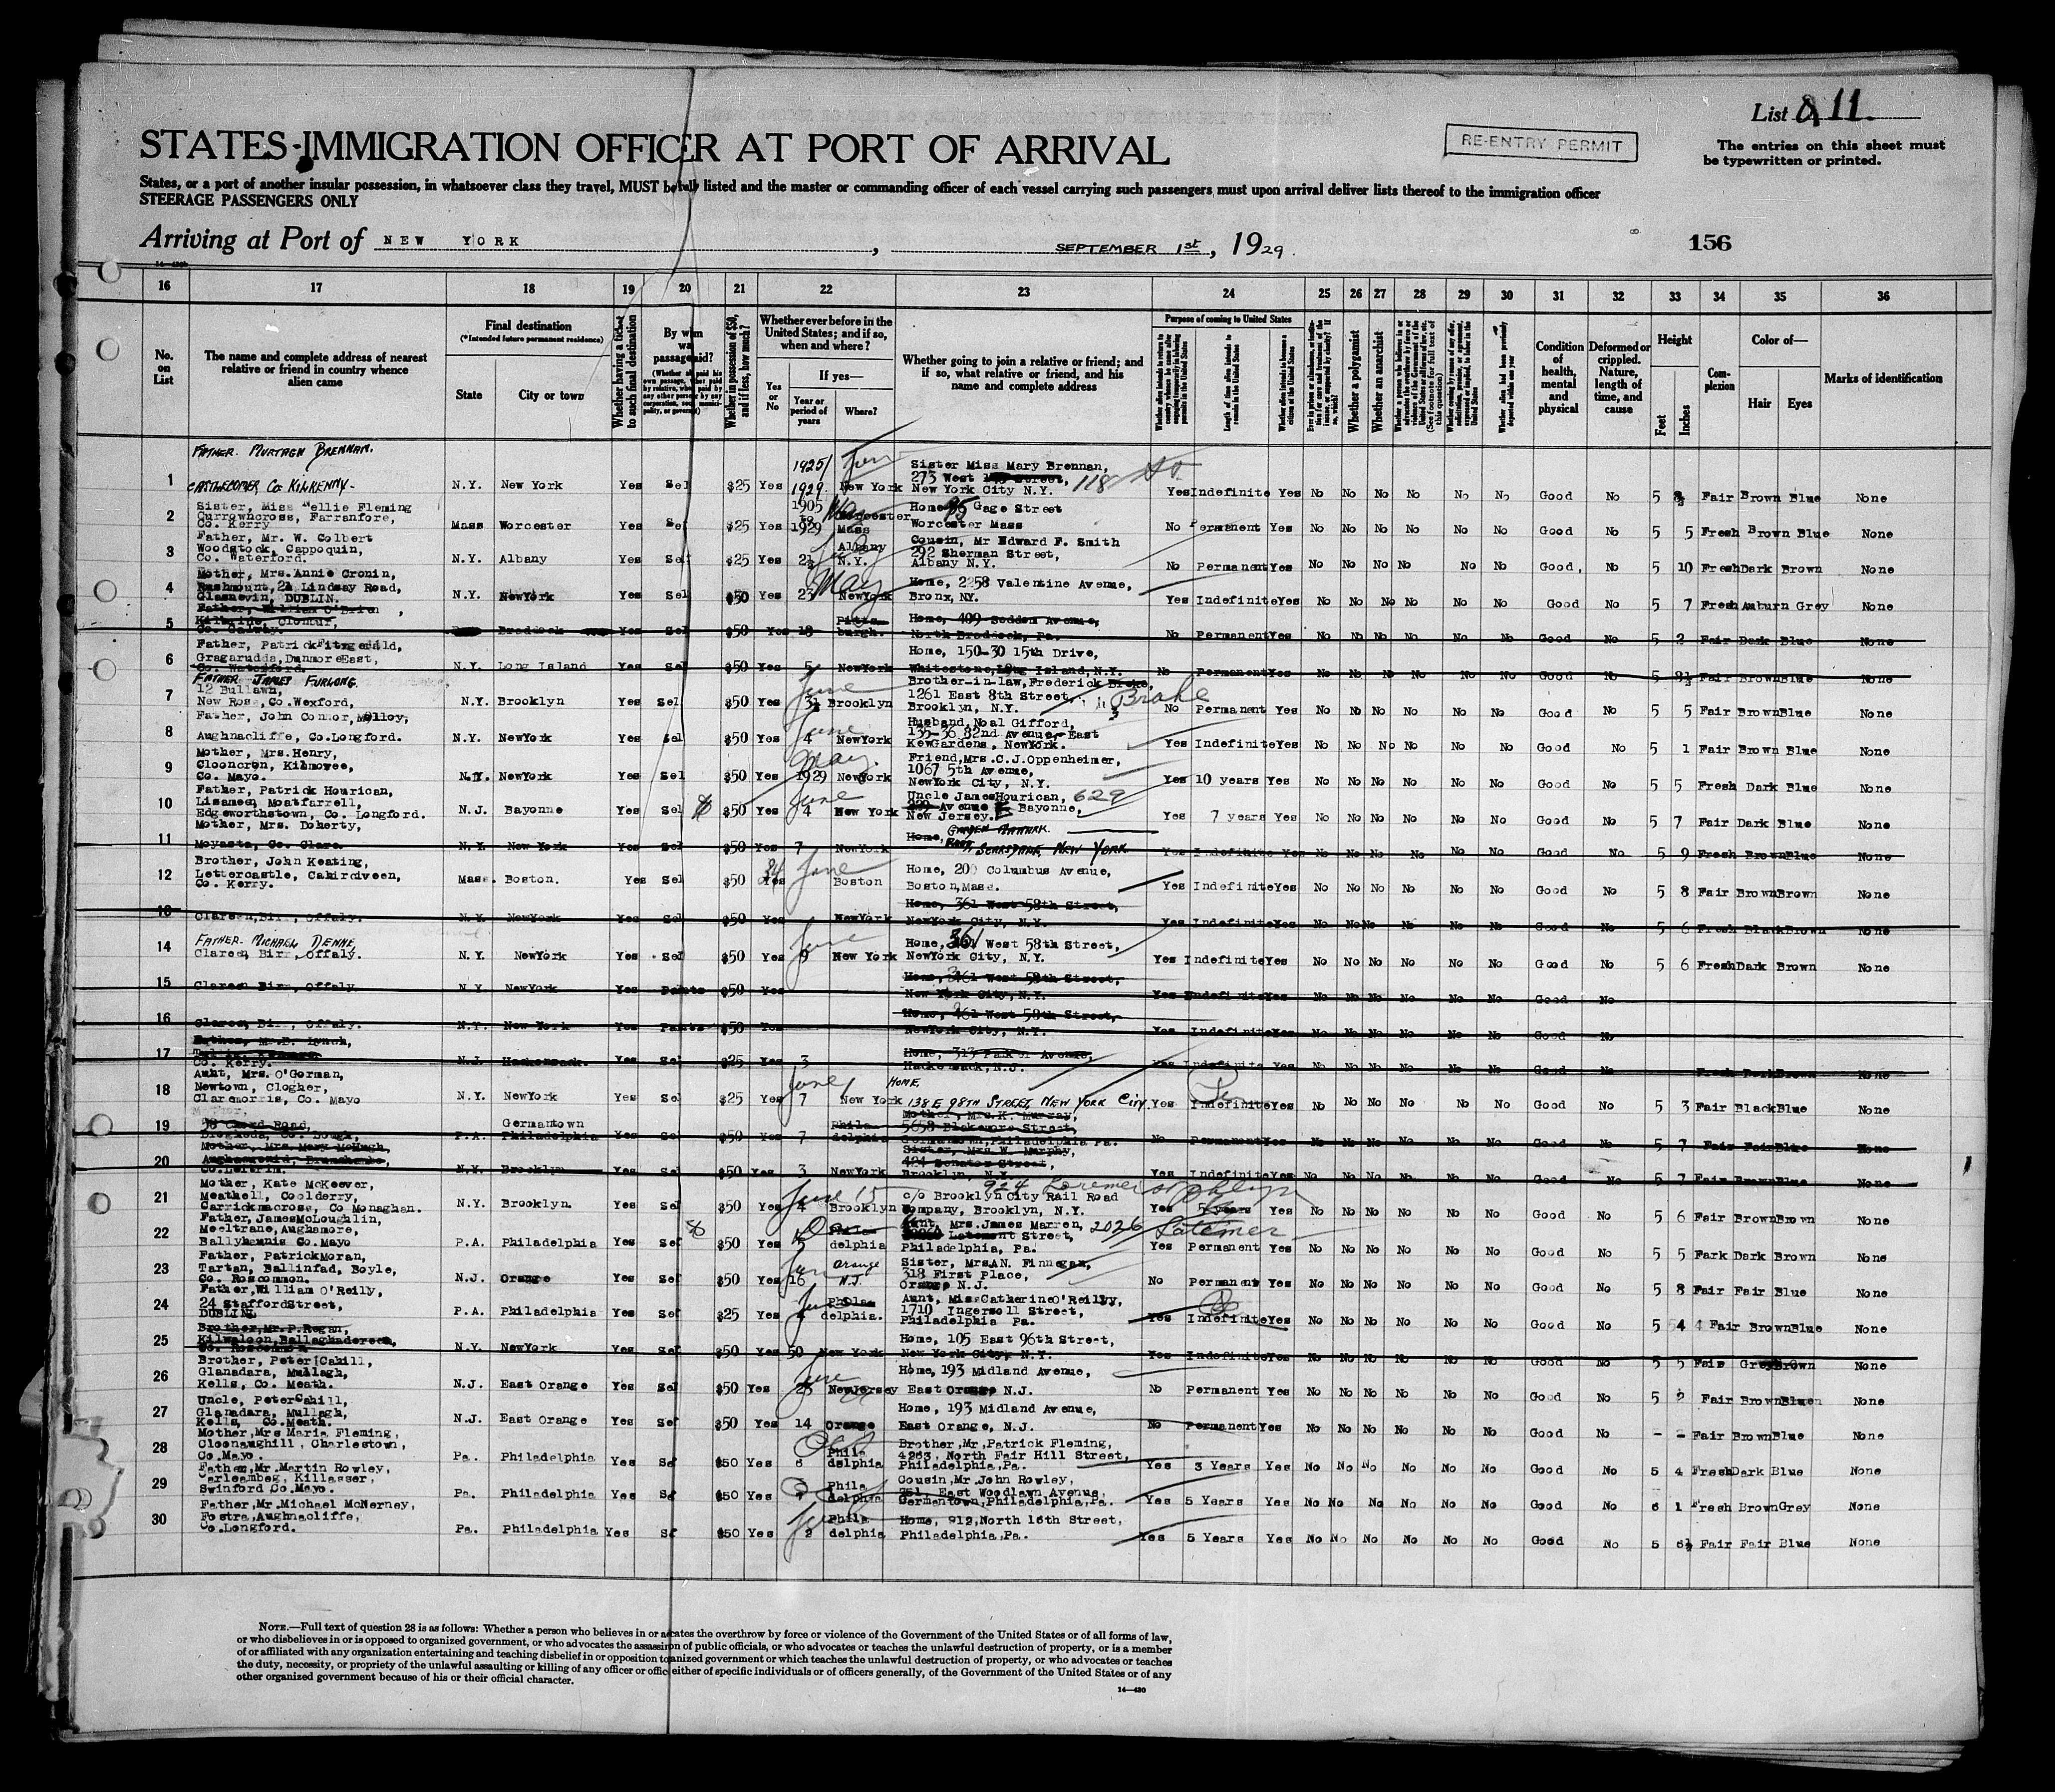 List 11.
STATES-IMMIGRATION OFFICER AT PORT OF ARRIVAL
RE-ENTRY PERMIT
The entries on this sheet must
be typewritten or printed.
States, or a port of another insular possession, in whatsoever class they travel, MUST be fully listed and the master or commanding officer of each vessel carrying such passengers must upon arrival deliver lists thereof to the immigration officer
STEERAGE PASSENGERS ONLY
Arriving at Port of NEW YORK, SEPTEMBER 1st, 1929.
156
16 17 18 19 20 21 22 23 24 25 26 27 28 29 30 31 32 33 34 35 36
No. on List
The name and complete address of nearest relative or friend in country whence alien came
Final destination
(*Intended future permanent residence)
State
City or town
Whether having a ticket to such final destination
By whom was passage paid?
Whether in possession of $50, and if less, how much?
Whether ever before in the United States; and if so, when and where?
Yes or No
If yes—
Year or period of years
Where?
Whether going to join a relative or friend; and if so, what relative or friend, and his name and complete address
Purpose of coming to United States
Length of time alien intends to remain in the United States
Whether a polygamist
Whether an anarchist
Condition of health, mental and physical
Deformed or crippled. Nature, length of time, and cause
Height
Feet
Inches
Complexion
Color of—
Hair
Eyes
Marks of identification
FATHER. MURTAGH BRENNAN.
1 CASTLECOMER, CO. KILKENNY- N.Y. New York Yes Self $25 Yes 1925/1929 New York Sister Miss Mary Brennan, 273 West 118 New York City N.Y. Yes Indefinite Yes No No No No No No Good No 5 Fair Brown Blue None
2 Sister, Miss Nellie Fleming Currowncross, Farranfore, Co. Kerry Mass Worcester Yes Self $25 Yes 1905 to 1929 Worcester Mass Home 95 Gage Street Worcester Mass No Permanent Yes No No No No No No Good No 5 5 Fresh Brown Blue None
3 Father, Mr. W. Colbert Woodstock, Cappoquin, Co. Waterford. N.Y. Albany Yes Self $25 Yes 2½ Albany N.Y. Cousin, Mr Edward F. Smith 292 Sherman Street, Albany N.Y. No Permanent Yes No No No No No No Good, No 5 10 Fresh Dark Brown None
4 Mother, Mrs. Annie Cronin, Rushmount, 21 Lindsay Road, Glasnevin, DUBLIN. N.Y. NewYork Yes Self $50 Yes 23 May NewYork Home, 2258 Valentine Avenue, Bronx, NY. Yes Indefinite Yes No No No No No No Good No 5 7 Fresh Auburn Grey None
5 Father, William O'Brien, Co. Galway. Braddock Yes Self $50 Yes 18 Pittsburgh. Home, 409 Seddon Avenue, North Braddock, Pa. No Permanent Yes No No No No No No Good No 5 2 Fair Dark Blue None
6 Father, Patrick Fitzgerald, Gragarudda, Dunmore East, Co. Waterford. N.Y. Long Island Yes Self $50 Yes 5 NewYork Home, 150-30 15th Drive, Whitestone, Long Island, N.Y. No Permanent Yes No No No No No No Good No 5 Fair Brown Blue None
7 FATHER JAMES FURLONG. 12 Bullawn, New Ross, Co. Wexford, N.Y. Brooklyn Yes Self $50 Yes June 3½ Brooklyn Brother-in-law, Frederick Brake 1261 East 8th Street, Brooklyn, N.Y. No Permanent Yes No No No No No No Good No 5 5 Fair Brown Blue None
8 Father, John Connor, Molloy, Aughnacliffe, Co. Longford. N.Y. NewYork Yes Self $50 Yes June 4 NewYork Husband, Noal Gifford, 135-36 82nd Avenue,-East KewGardens, NewYork. Yes Indefinite Yes No No No No No No Good No 5 1 Fair Brown Blue None
9 Mother, Mrs. Henry, Clooncron, Kilmovee, Co. Mayo. N.Y. NewYork Yes Self $50 Yes May 1929 NewYork Friend, Mrs. C.J. Oppenheimer, 1067 5th Avenue, NewYork City, N.Y. Yes 10 years Yes No No No No No No Good No 5 5 Fresh Dark Blue None
10 Father, Patrick Hourican, Lisameen, Moatfarrell, Edgeworthstown, Co. Longford. N.J. Bayonne Yes Self $50 Yes June 4 New York Uncle James Hourican, 629 Avenue E Bayonne, New Jersey. Yes 7 years Yes No No No No No No Good No 5 7 Fair Dark Blue None
11 Mother, Mrs. Doherty, Moyasta, Co. Clare. N.Y. New York Yes Self $50 Yes 7 NewYork Home, SCARSDALE, NEW YORK Yes Indefinite Yes No No No No No No Good No 5 9 Fresh Brown Blue None
12 Brother, John Keating, Lettercastle, Cahirciveen, Co. Kerry. Mass. Boston. Yes Self $50 Yes June Boston Home, 200 Columbus Avenue, Boston, Mass. Yes Indefinite Yes No No No No No No Good No 5 8 Fair Brown Brown None
13 Clareen, Birr, Offaly. N.Y. NewYork Yes Self $50 Yes NewYork Home, 361 West 58th Street, NewYork City, N.Y. Yes Indefinite Yes No No No No No No Good No 5 6 Fresh Black Brown None
14 FATHER. MICHAEL DENNE, Clareen, Birr, Offaly. N.Y. NewYork Yes Self $50 Yes June 9 New York Home, 361 West 58th Street, NewYork City, N.Y. Yes Indefinite Yes No No No No No No Good No 5 6 Fresh Dark Brown None
15 Clareen Birr, Offaly. N.Y. NewYork Yes $50 Yes Home, 361 West 58th Street, New York City, N.Y. Yes Indefinite Yes No No No No No No Good No
16 Clareen, Birr, Offaly. N.Y. New York Yes $50 Yes Home, 461 West 58th Street, NewYork City, N.Y. Yes Indefinite Yes No No No No No No Good No
17 Father, Mr. D. Lynch, Co. Kerry. N.J. Hackensack. Yes Self $25 Yes 3 Home, 313 Avenue, Hackensack, N.J. Yes Indefinite Yes No No No No No No Good No Fresh Dark Brown None
18 Aunt, Mrs. O'Gorman, Newtown, Clogher, Claremorris, Co. Mayo N.Y. NewYork Yes Self $25 Yes June 7 New York HOME, 138 E 98TH STREET, NEW YORK CITY Yes Indefinite Yes No No No No No No Good No 5 3 Fair Black Blue None
19 Road, Drogheda, Co. Louth, P.A. Germantown Philadelphia Yes Self $50 Yes 7 Philadelphia Mother, Mrs. K. Murray, 5658 Blakemore Street, Germantown, Philadelphia Pa. No Permanent Yes No No No No No No Good No 5 7 Fair Fair Blue None
20 Mother, Mrs. Mary McHugh, Co. Leitrim. N.Y. Brooklyn Yes Self $50 Yes 3 NewYork Sister, Mrs. W. Murphy, Senator Street, Brooklyn, N.Y. Yes Indefinite Yes No No No No No No Good No 5 7 Fair Brown Blue None
21 Mother, Kate McKeever, Meathell, Coolderry, Carrickmacross, Co Monaghan. N.Y. Brooklyn. Yes Self $50 Yes June 15 4 Brooklyn c/o Brooklyn City Rail Road Company, Brooklyn, N.Y. Yes 5 years Yes No No No No No No Good No 5 6 Fair Brown Brown None
22 Father, James McLoughlin, Meeltrane, Aughamore, Ballyhaunis Co. Mayo P.A. Philadelphia Yes Self $50 Yes 5 Philadelphia Aunt, Mrs. James Marren, 2026 Latimer Street, Philadelphia, Pa. Yes Permanent Yes No No No No No No Good No 5 5 Fark Dark Brown None
23 Father, Patrick Moran, Tartan, Ballinfad, Boyle, Co. Roscommon. N.J. Orange Yes Self $50 Yes 16 Orange N.J. Sister, Mrs. A.N. Finnegan, 318 First Place, Orange N.J. No Permanent Yes No No No No No No Good No 5 8 Fair Fair Blue None
24 Father, William O'Reily, 24 Stafford Street, DUBLIN. P.A. Philadelphia Yes Self $25 Yes Philadelphia. Aunt, Miss Catherine O'Reilly, 1710 Ingersoll Street, Philadelphia Pa. Yes Indefinite Yes No No No No No No Good No 5 4 Fair Brown Blue None
25 Brother, Mr. P. Regan, Kilwaloon, Ballaghadereen, Co. Roscommon N.Y. NewYork Yes Self $50 Yes 50 New York Home, 105 East 96th Street, New York City, N.Y. Yes Indefinite Yes No No No No No No Good No 5 5 Fair Grey Brown None
26 Brother, Peter Cahill, Glanadara, Mullagh, Kells, Co. Meath. N.J. East Orange Yes Self $50 Yes June 23 NewJersey Home, 193 Midland Avenue, East Orange N.J. No Permanent Yes No No No No No No Good No 5 2 Fair Brown Blue None
27 Uncle, Peter Cahill, Glanadara, Mullagh, Kells, Co. Meath. N.J. East Orange Yes Self $50 Yes 14 Orange Home, 193 Midland Avenue, East Orange, N.J. No Permanent Yes No No No No No No Good No - - Fair Brown Blue None
28 Mother, Mrs Maria Fleming, Cloonaughill, Charlestown, Co. Mayo. Pa. Philadelphia Yes Self $50 Yes 6 Philadelphia Brother, Mr, Patrick Fleming, 4263, North Fair Hill Street, Philadelphia, Pa. Yes 3 Years Yes No No No No No No Good No 5 4 Fresh Dark Blue None
29 Father, Mr. Martin Rowley, Carleambeg, Killasser, Swinford Co. Mayo. Pa. Philadelphia Yes Self $50 Yes Philadelphia Cousin, Mr. John Rowley, 251, East Woodlawn Avenue, Germantown, Philadelphia, Pa. Yes 5 Years Yes No No No No No No Good No 6 1 Fresh Brown Grey None
30 Father, Mr. Michael McNerney, Fostra, Aughnacliffe, Co. Longford. Pa. Philadelphia Yes Self $50 Yes 2 Philadelphia Home, 912, North 16th Street, Philadelphia, Pa. Yes 5 Years Yes No No No No No No Good No 5 6½ Fair Fair Blue None
NOTE.—Full text of question 28 is as follows: Whether a person who believes in or advocates the overthrow by force or violence of the Government of the United States or of all forms of law,
or who disbelieves in or is opposed to organized government, or who advocates the assassination of public officials, or who advocates or teaches the unlawful destruction of property, or is a member
of or affiliated with any organization entertaining and teaching disbelief in or opposition to organized government or which teaches the unlawful destruction of property, or who advocates or teaches
the duty, necessity, or propriety of the unlawful assaulting or killing of any officer or officers, either of specific individuals or of officers generally, of the Government of the United States or of any
other organized government because of his or their official character.
14—430